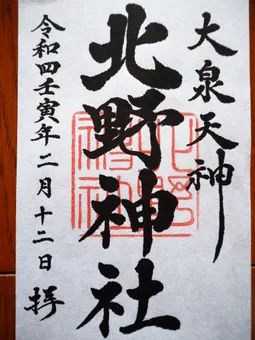 大泉天神
北野神社
令和四壬寅年二月十二日 拝
北野
神社